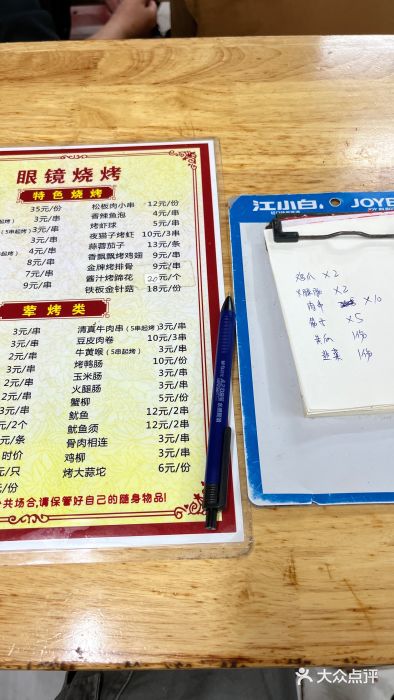 眼镜烧烤
特色烧烤
35元/份 松板肉小串 12元/份
3元/串 香辣鱼泡 4元/串
3元/串 烤虾球 5元/串
3元/串 夜猫子烤虾 10元/3串
4元/串 蒜蓉茄子 13元/条
8元/串 香飘飘烤鸡翅 9元/串
7元/串 金牌烤排骨 9元/串
9元/串 酱汁烤蹄花 元/个
铁板金针菇 18元/份
荤烤类
3元/串 清真牛肉串(5串起烤) 3元/串
3元/串 豆皮肉卷 10元/3串
2元/串 牛黄喉(5串起烤) 3元/串
3元/串 烤鸭肠 3元/串
玉米肠 3元/串
火腿肠 3元/串
蟹柳 5元/份
鱿鱼 12元/2串
元/个 鱿鱼须 12元/2串
元/条 骨肉相连 3元/串
时价 鸡柳 3元/串
元/只 烤大蒜坨 6元/份
元/份
共场合,请保管好自己的随身物品!
江小白 JOYB
鸡爪 x2
x2
肉串 x10
x5
1份
韭菜 1份
大众点评